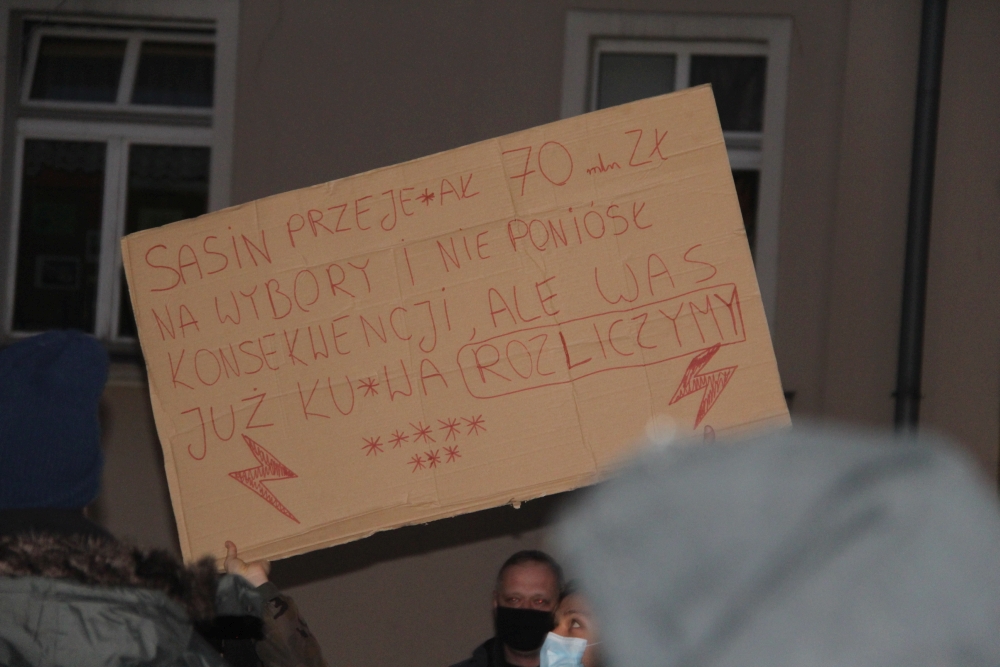 SASIN PRZEJE*AŁ 70 mln ZŁ
NA WYBORY I NIE PONIÓSŁ
KONSEKWENCJI, ALE WAS
JUŻ KU*WA ROZLICZYMY
*****
***